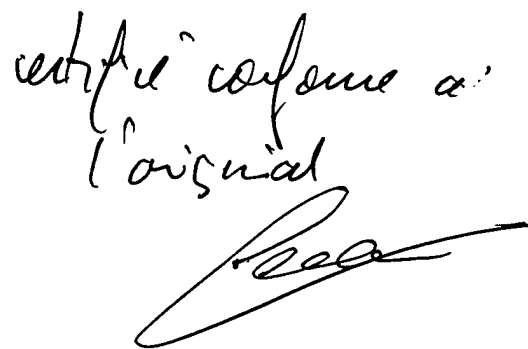 certifié conforme à
l'original